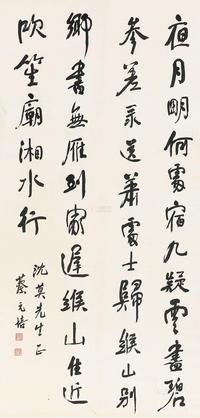 夜月明何處宿九疑雲盡碧
參差录送蕭處士歸緱山別
鄉書無雁到家遲緱山住近
吹笙廟湘水行
沈英先生正
蔡元培